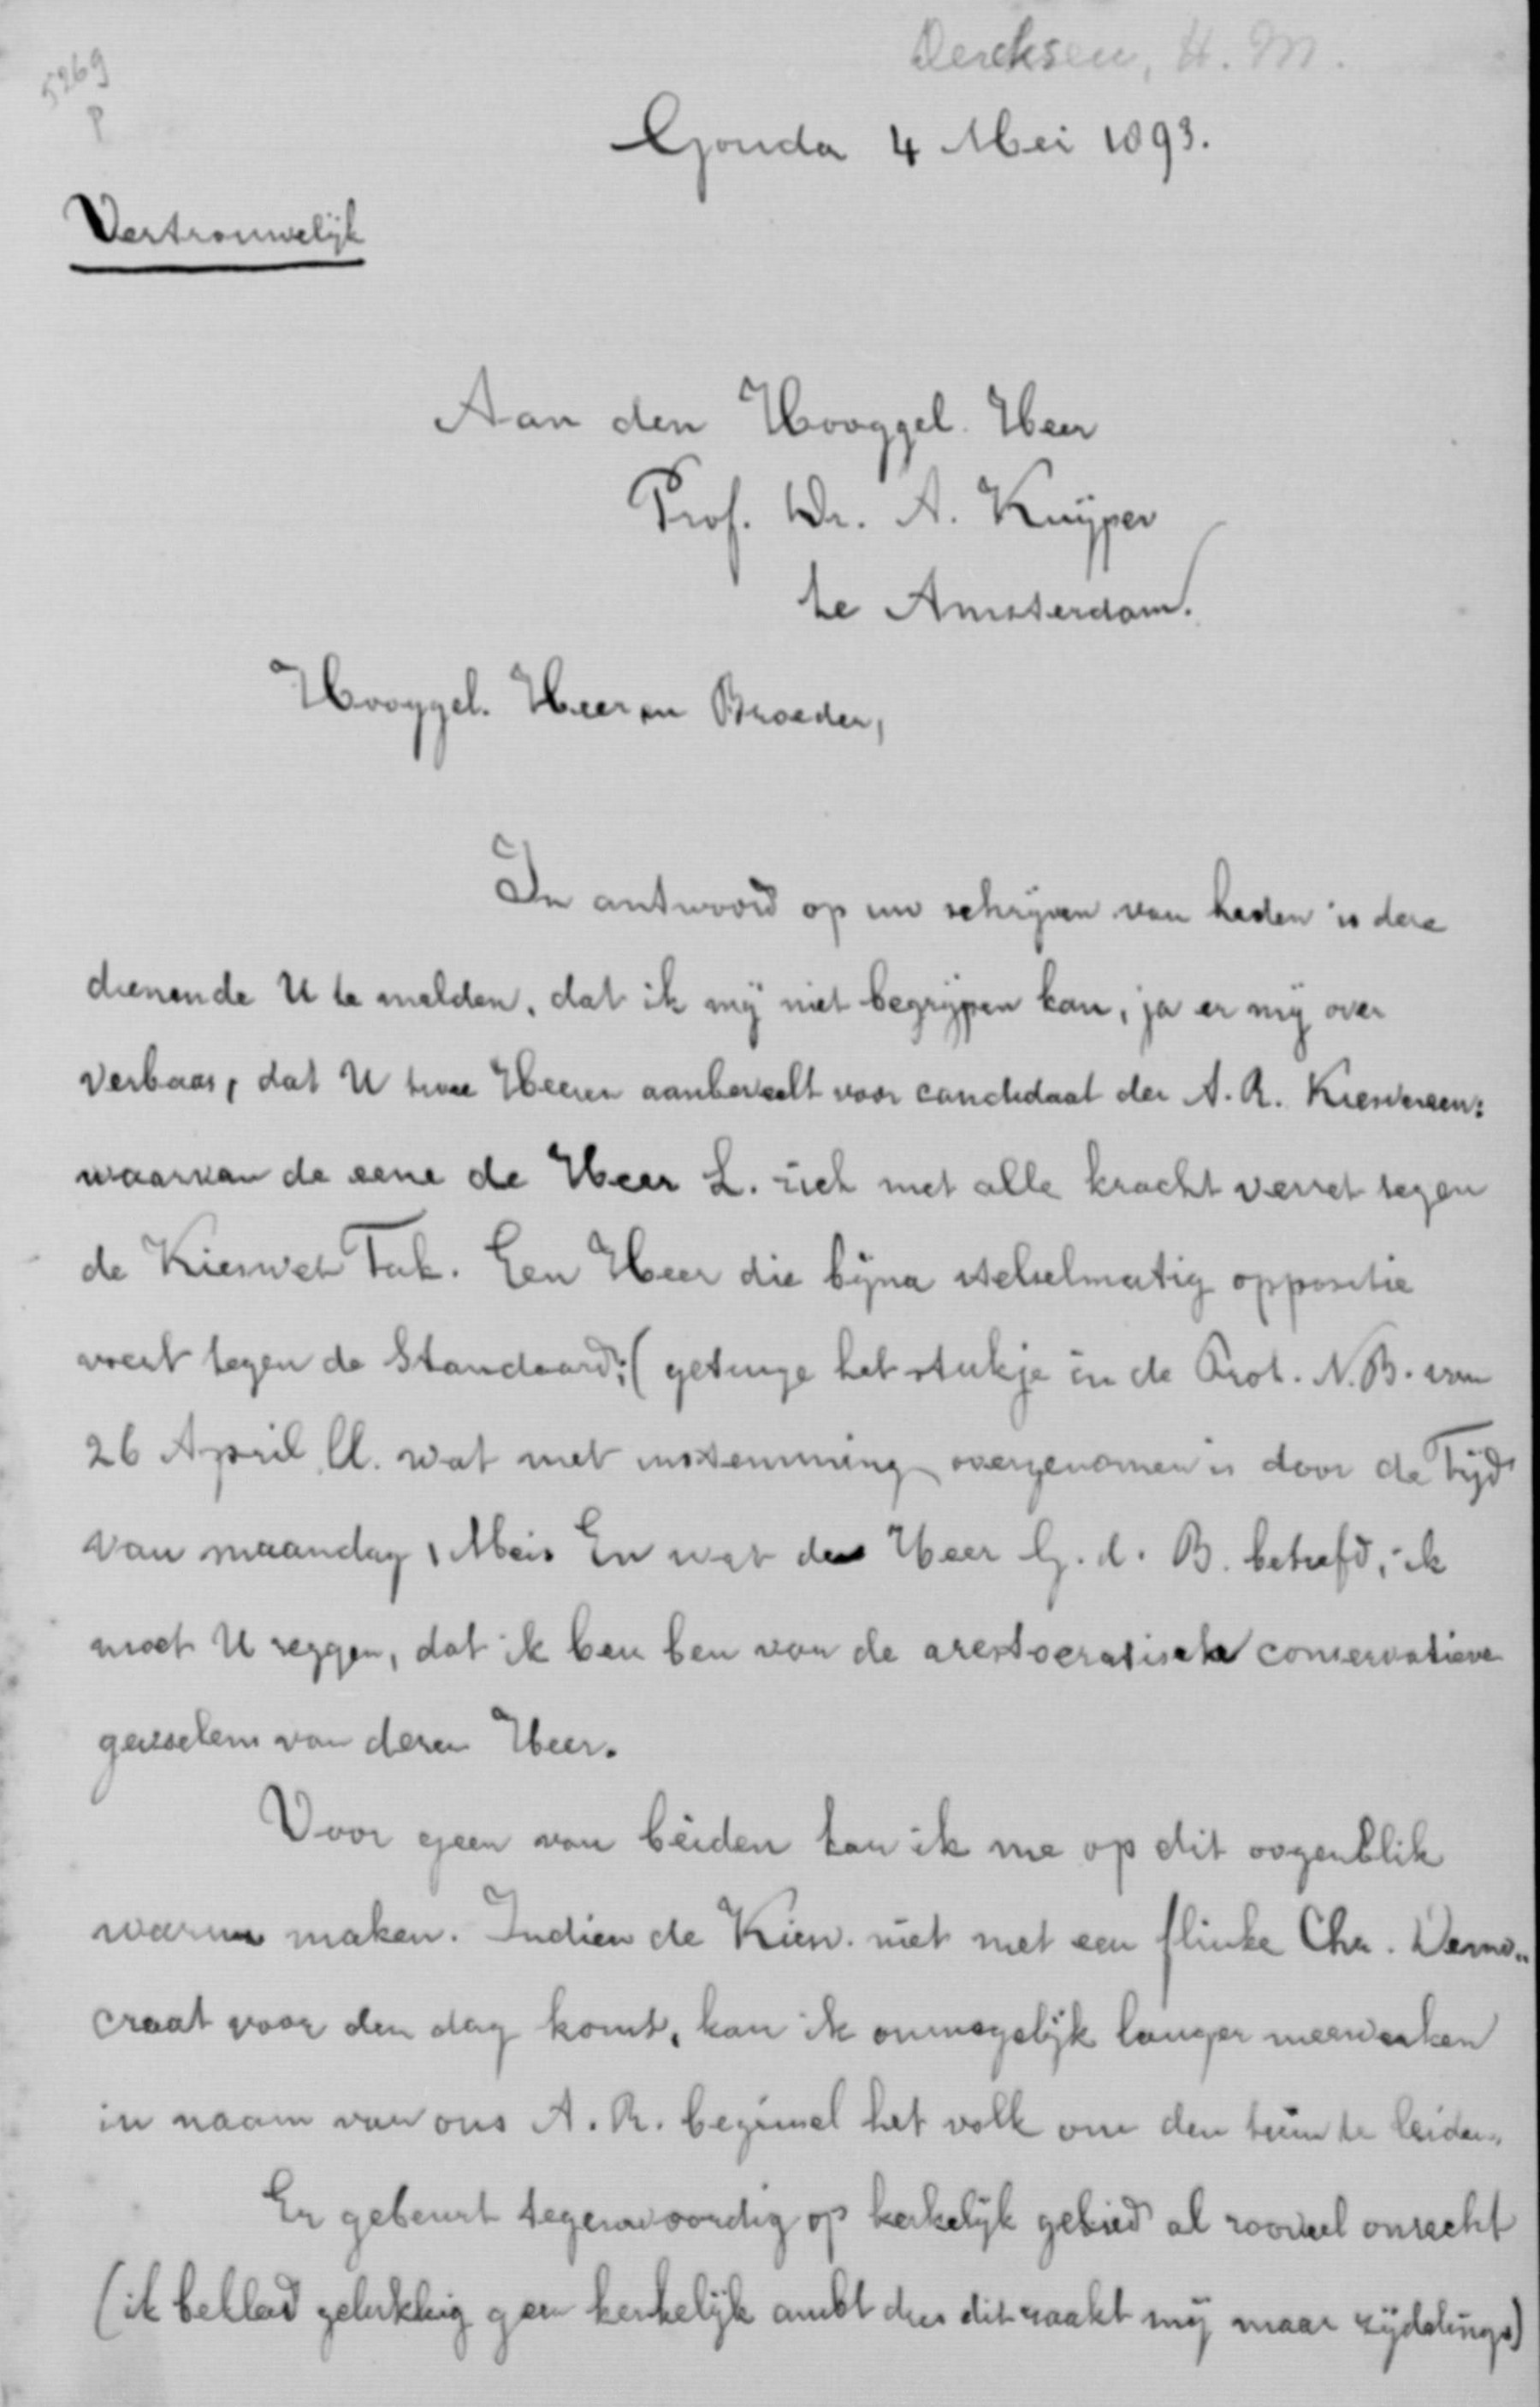 Dercksen, H. M.
5269
P
Gouda 4 Mei 1893.
Vertrouwelijk
Aan den Hooggel. Heer
Prof. Dr. A. Kuijper
te Amsterdam.
Hooggel. Heer en Broeder,
In antwoord op uw schrijven van heden is deze
dienende U te melden, dat ik mij niet begrijpen kan, ja er mij over
verbaas, dat U twee Heeren aanbeveelt voor candidaat der A. R. Kiesvereen:
waarvan de eene de Heer L. zich met alle kracht verzet tegen
de Kieswet Tak. Een Heer die bijna stelselmatig oppositie
voert tegen de Standaard; (getuige het stukje in de Prot. N.B. van
26 April ll. wat met instemming overgenomen is door de Tijd
van maandag 1 Mei. En wat den Heer G. d. B. betrefd, ik
moet U zeggen, dat ik ben van de arestocratische conservatieve
van dezen Heer.
Voor geen van beiden kan ik me op dit oogenblik
warm maken. Indien de Kiesv. niet met een flinke Chr. Demo„
craat voor den dag komt, kan ik onmogelijk langer meewerken
in naam van ons A. R. beginsel het volk om den tuin te leiden.
Er gebeurt tegenwoordig op kerkelijk gebied al zooveel onrecht
(ik bekleed gelukkig geen kerkelijk ambt dus dit raakt mij maar zijdelings)